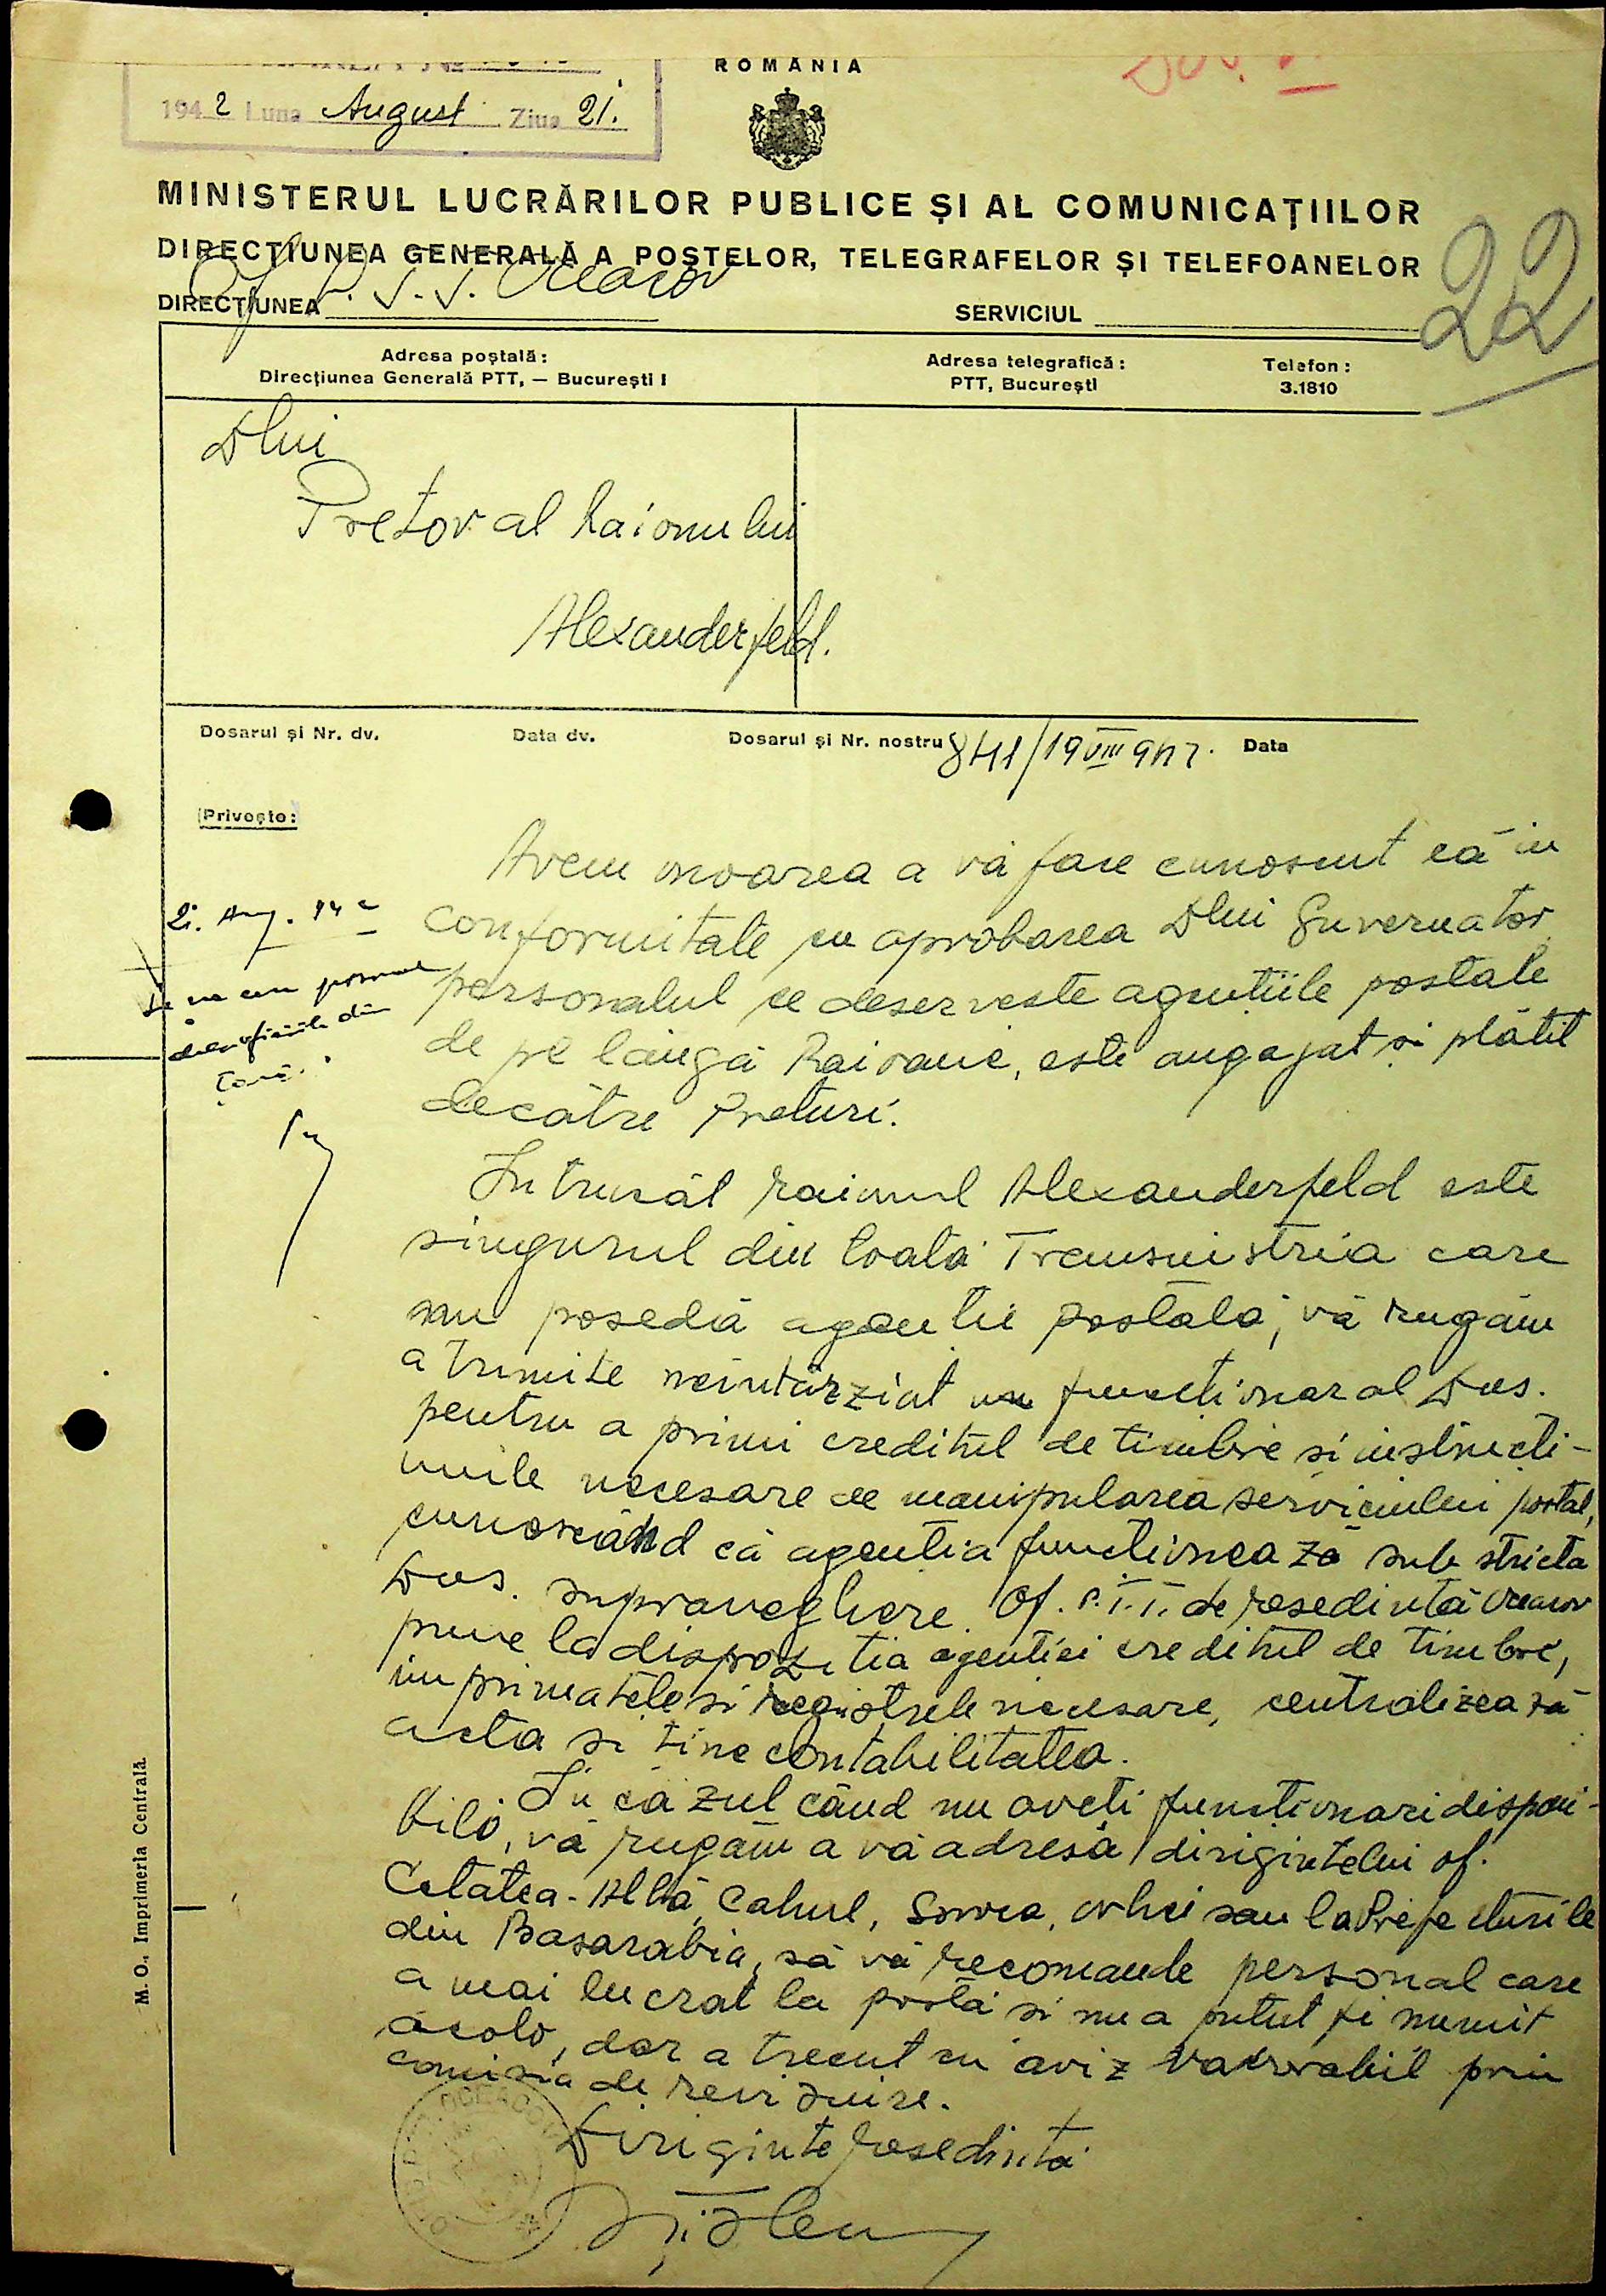 ROMÂNIA
1942 Luna August Ziua 21.
MINISTERUL LUCRĂRILOR PUBLICE ȘI AL COMUNICAȚIILOR
DIRECȚIUNEA GENERALĂ A POȘTELOR, TELEGRAFELOR ȘI TELEFOANELOR
22
DIRECȚIUNEA Of. P.T.T. Oceacov
SERVICIUL
Adresa poștală:
Direcțiunea Generală PTT, — București I
Adresa telegrafică:
PTT, București
Telefon:
3.1810
Dlui
Pretor al Raionului
Alexanderfeld.
Dosarul și Nr. dv.
Data dv.
Dosarul și Nr. nostru 841/19 VIII 942.
Data
Privește:
Avem onoarea a vă face cunoscut că in
conformitate cu aprobarea Dlui Guvernator
personalul ce deserveste agentiile postale
de pe lângă Raioane, este angajat si plătit
decătre Preturi.
Intrucât raionul Alexanderfeld este
singurul din toată Transnistria care
nu posedă agentie postală, vă rugăm
a trimite neintârziat un functionar al Dvs.
pentru a primi creditul de timbre si instructi-
unile necesare de manipularea serviciului postal,
cunoscând că agentia functionează sub stricta
Dvs. supraveghere. Of. P.T.T. de resedintă Oceacov
pune la dispozitia agentiei creditul de timbre,
imprimatele si registrele necesare, centralizează
acta si tine contabilitatea.
In cazul când nu aveti functionari disponi-
bili, vă rugăm a vă adresa dirigintelui of.
Cetatea-Albă, Cahul, Soroca, Orhei sau la Prefecturile
din Basarabia, să vă recomande personal care
a mai lucrat la postă si nu a putut fi numit
acolo, dar a trecut cu aviz favorabil prin
comisia de revizuire.
Diriginte resedintă
2i. Aug. 942
Se va cere personal
dela oficiile din
țară.
M. O., Imprimeria Centrală